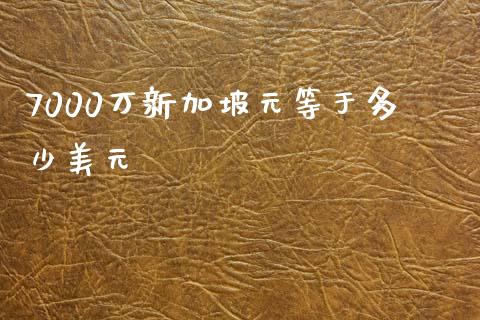 7000万新加坡元等于多
少美元